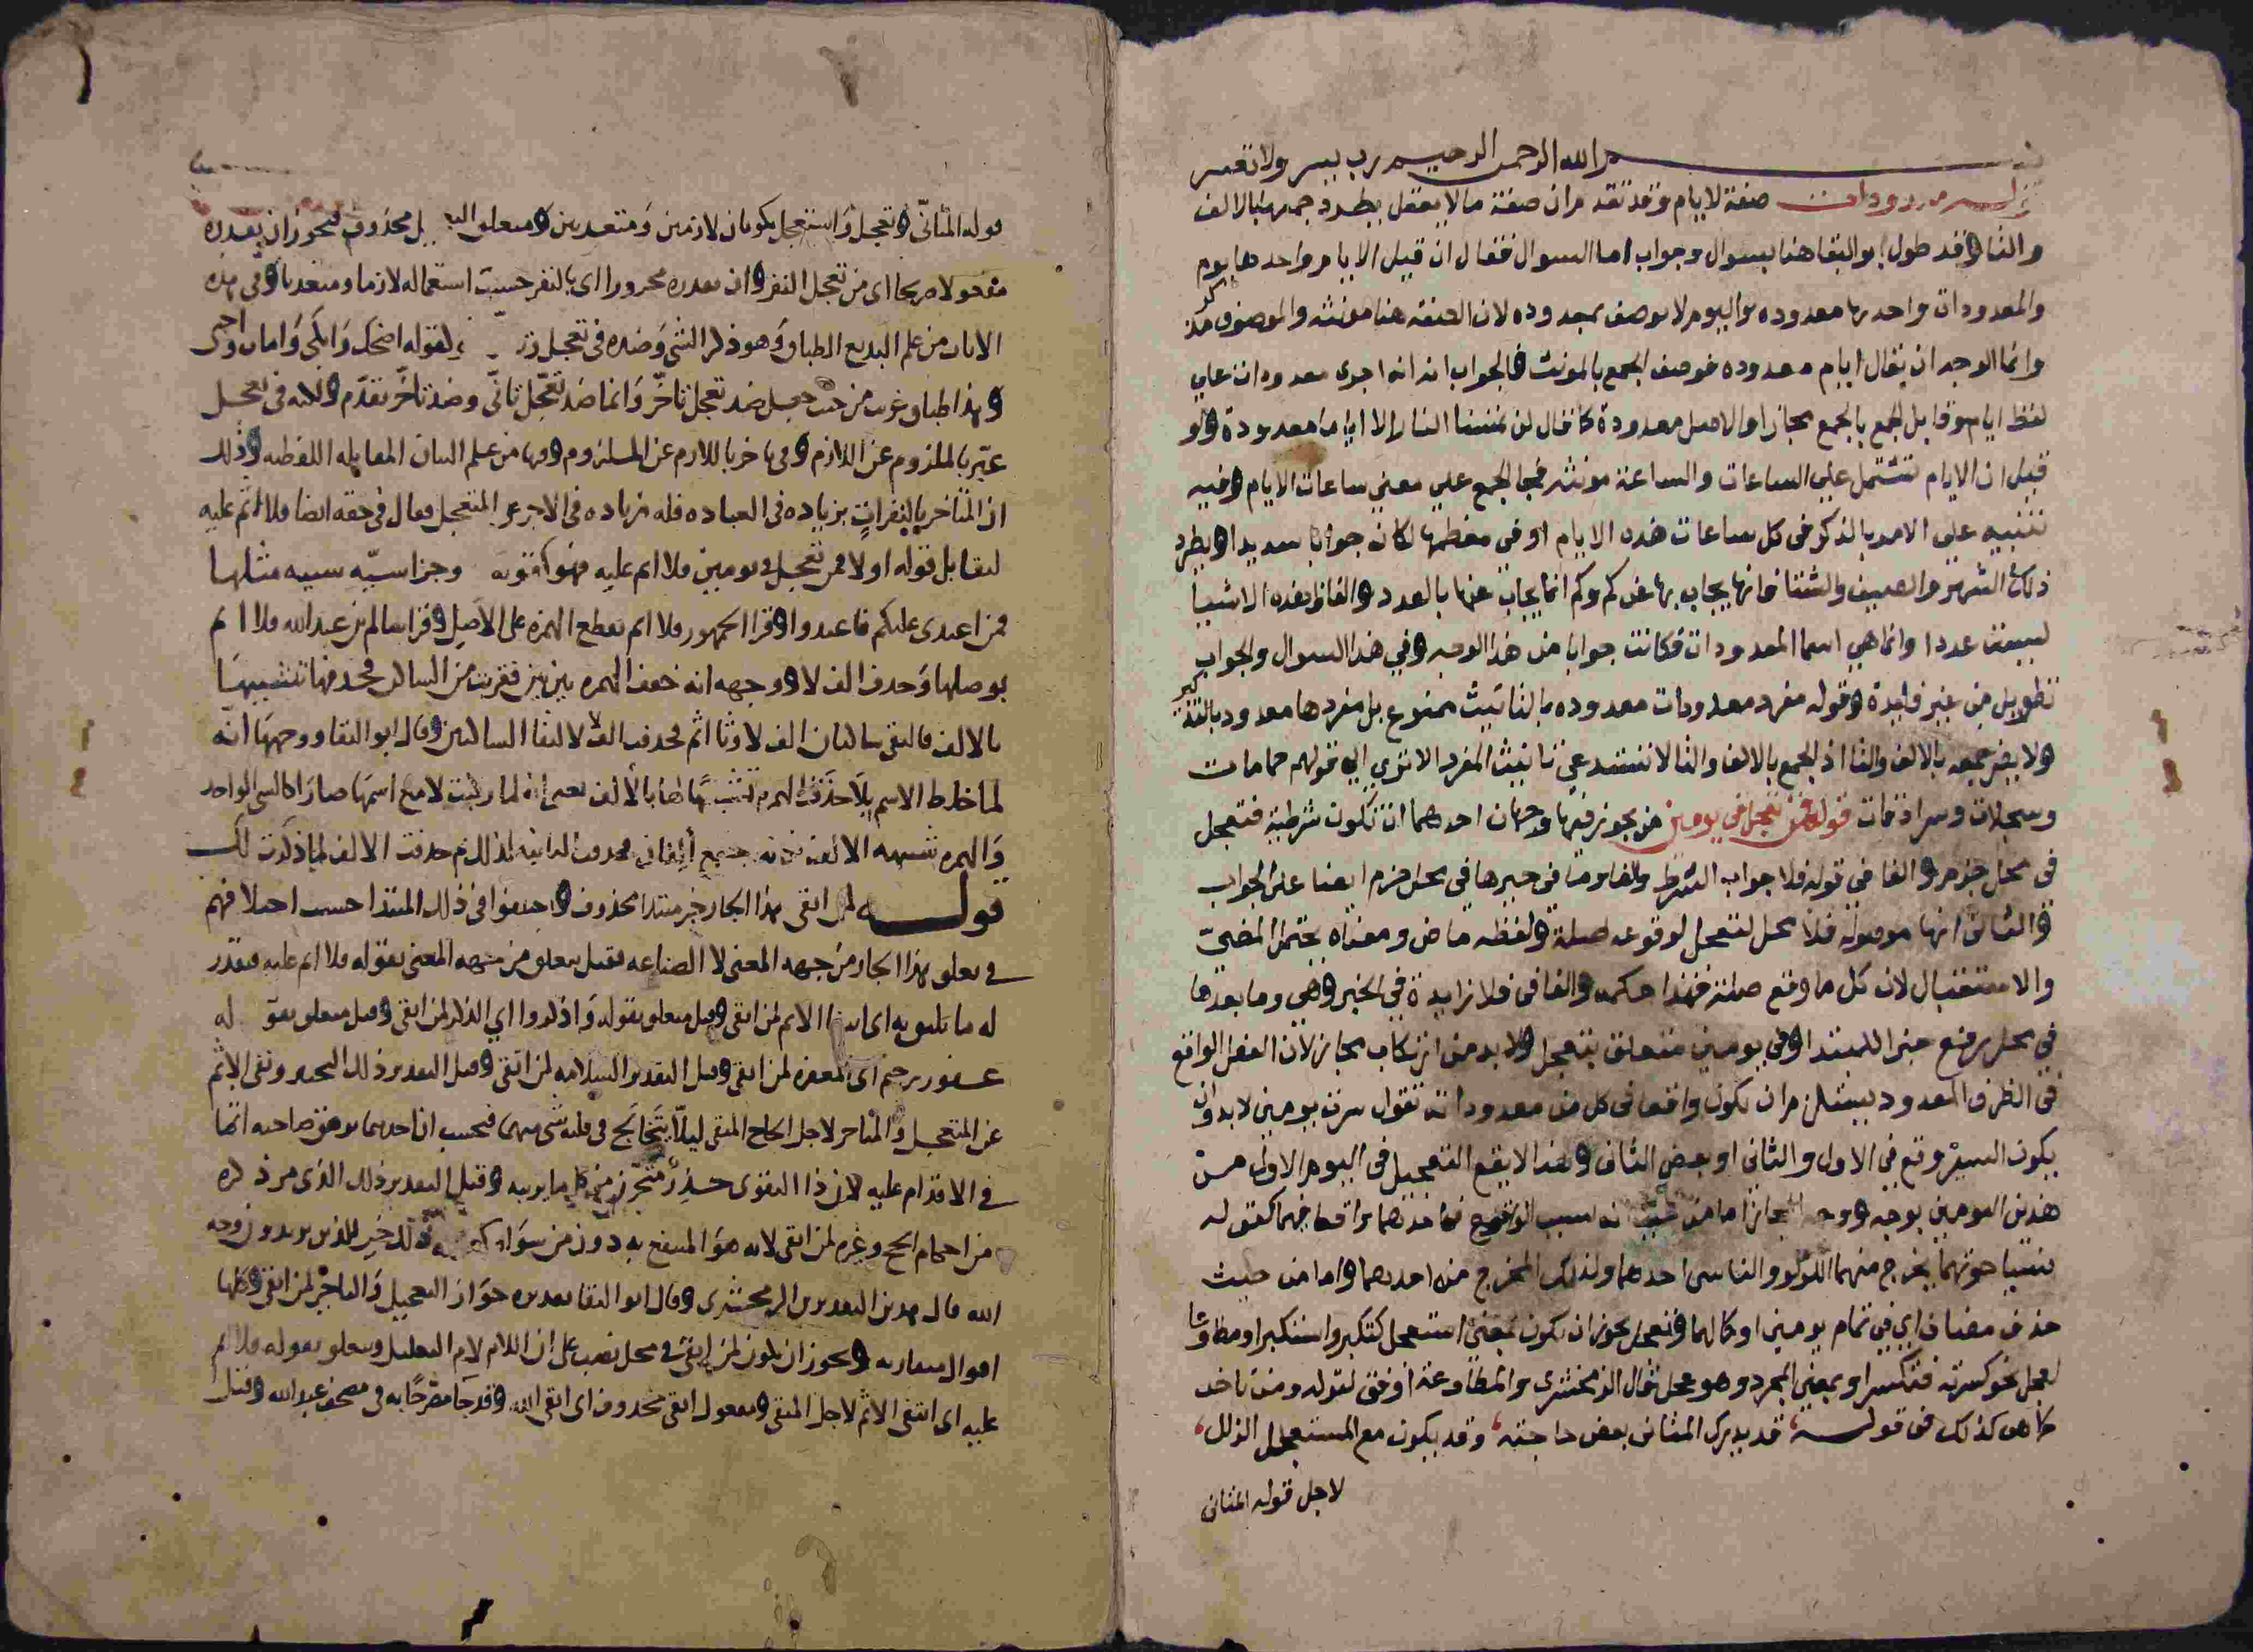 بسم الله الرحمن الرحيم رب يسر ولا تعسر
قوله معدودات صفة لايام وقد تقدم ان صفة ما لا يعقل يطرد جمعها بالالف
والتا وقد طول ابو البقا هنا بسوال وجواب اما السوال فقال ان قيل الايام واحدها يوم
والمعدودات واحدتها معدوده واليوم لا يوصف بمعدوده لان الصفة هنا مونثه والموصوف مذكر
وانما الوجه ان يقال ايام معدوده فوصف الجمع بالمونث فالجواب انه اجرى معدودات علي
لفظ ايام وقابل الجمع بالجمع مجازا والاصل معدودة كما قال لن تمسنا النار الا اياما معدودة ولو
قيل ان الايام تشتمل علي الساعات والساعة مونثه فجا الجمع علي معني ساعات الايام وفيه
تنبيه علي الامر بالذكر في كل ساعات هذه الايام او في معظمها لكان جوابا سديدا ونظير
ذلك الشهر والصيف والشتا فانها يجاب بها عن كم وكم انما يجاب عنها بالعدد والفاظ هذه الاشيا
ليست عددا وانما هي اسما المعدودات فكانت جوابا من هذا الوجه وفي هذا السوال والجواب
تطويل من غير فايدة وقوله مفرد معدودات معدوده بالتانيث ممنوع بل مفردها معدود بالتذكير
ولا يضر جمعه بالالف والتا اذ الجمع بالالف والتا لا يستدعي تانيث المفرد الا تري الي قولهم حمامات
وسجلات وسرادقات قوله فمن تعجل في يومين من يجوز فيها وجهان احدهما ان تكون شرطية فتعجل
في محل جزم والفا في قوله فلا جواب الشرط والفا وما في حيزها في محل جزم ايضا علي الجواب
والثاني انها موصولة فلا محل لتعجل لوقوعه صلة ولفظه ماض ومعناه يحتمل المضي
والاستقبال لان كل ما وقع صلة فهذا حكمه والفا في فلا زايدة في الخبر وهي وما بعدها
في محل رفع خبرا للمبتدا وفي يومين متعلق بتعجل ولا بد من ارتكاب مجاز لان الفعل الواقع
في الظرف المعدود يستلزم ان يكون واقعا في كل من معدوداته تقول سرت يومين لا بد وان
يكون السير وقع في الاول والثاني او بعض الثاني وهذا لا يقع التعجيل في اليوم الاول من
هذين اليومين بوجه ووجه المجاز اما من حيث انه نسب الواقع في احدهما واقعا فيهما كقوله
نسيا حوتهما يخرج منهما اللولو والناسي احدهما وكذلك المخرج من احدهما واما من حيث
حذف مضاف اي في تمام يومين او كمالهما وتعجل يجوز ان يكون بمعني استعجل كتكبر واستكبر او مطاوعا
لعجل نحو كسرته فتكسر او بمعني المجرد وهو عجل قال الزمخشري والمطاوعة اوفق لقوله ومن تاخر
كما هي كذلك في قوله قد يدرك المتاني بعض حاجته وقد يكون مع المستعجل الزلل
لاجل قوله المتاني
قوله المتانّي وتعجل واستعجل يكونان لازمين ومتعديين ومتعلق التعجيل محذوف فيجوز ان تقدره
مفعولا صريحا اي من تعجل النفر وان تقدره مجرورا اي بالنفر حسب استعماله لازما ومتعديا وفي هذه
الايات من علم البديع الطباق وهو ذكر الشي وضده في تعجل كقوله اضحك وابكي وامات واحيى
وهذا طباق غريب من حيث جعل ضد تعجل تاخّر وانما ضد تعجّل تانّى وضد تاخّر تقدّم ولكنه في تعجل
عبّر بالملزوم عن اللازم وفي تاخر باللازم عن الملزوم وفيها من علم البيان المقابله اللفظيه وذلك
ان المتاخر بالنفر اتٍ بزياده في العباده فله زياده في الاجر على المتعجل فقال في حقه ايضا فلا اثم عليه
ليقابل قوله اولا فمن تعجل في يومين فلا اثم عليه فهو كقوله وجزا سيّه سييه مثلها
فمن اعتدى عليكم فاعتدوا وقرا الجمهور فلا اثم بقطع الهمزه على الاصل وقرا سالم بن عبدالله فلا اثم
بوصلها وحذف الف لا ووجهه انه خفف الهمزه بين بين فقربت من الساكن فحذفها تشبيها
بالالف فالتقى ساكنان الف لا وثا اثم فحذفت الف لا لالتقا الساكنين وقال ابو البقا ووجهها انّه
لما خلط الاسم بلا حذف الهمزه تشبيها لها بالالف يعني انه لما ركبت لا مع اسمها صارا كالشي الواحد
والهمزه شبيهه الالف فكانه اجتمع الفان فحذفت الثانيه لذلك ثم حذفت الالف لما ذكرت لك
قوله لمن اتقى هذا الجار خبر مبتدا محذوف واختلفوا في ذلك المبتدا حسب اختلافهم
في تعلق هذا الجار من جهه المعنى لا الصناعه فقيل يتعلق من جهه المعنى بقوله فلا اثم عليه فيقدر
له ما يليق به اي انتفا الاثم لمن اتقى وقيل متعلق بقوله واذكروا اي الذكر لمن اتقى وقيل متعلق بقوله
غفور رحيم اي المغفره لمن اتقى وقيل التقدير السلامه لمن اتقى وقيل التقدير ذلك التخيير ونفى الاثم
عن المتعجل والمتاخر لاجل الحاج المتقي ليلا يتخالج في قلبه شي منهما فيحسب ان احدهما يرهق صاحبه اثما
في الاقدام عليه لان ذا التقوى حذر متحرز من كل ما يريبه وقيل التقدير ذلك الذي مر ذكره
من احكام الحج وغيره لمن اتقى لانه هو المنتفع به دون من سواه كقوله ذلك خير للذين يريدون وجه
الله قال هذين التقديرين الزمخشري وقال ابو البقا تقديره جواز التعجيل والتاخير لمن اتقى وكلها
اقوال متقاربه ويجوز ان يكون لمن اتقى في محل نصب على ان اللام لام التعليل ويتعلق بقوله فلا اثم
عليه اي انتفى الاثم لاجل المتقي ومفعول اتقى محذوف اي اتقى الله وقد جا مصرّحا به في مصحف عبدالله وقيل